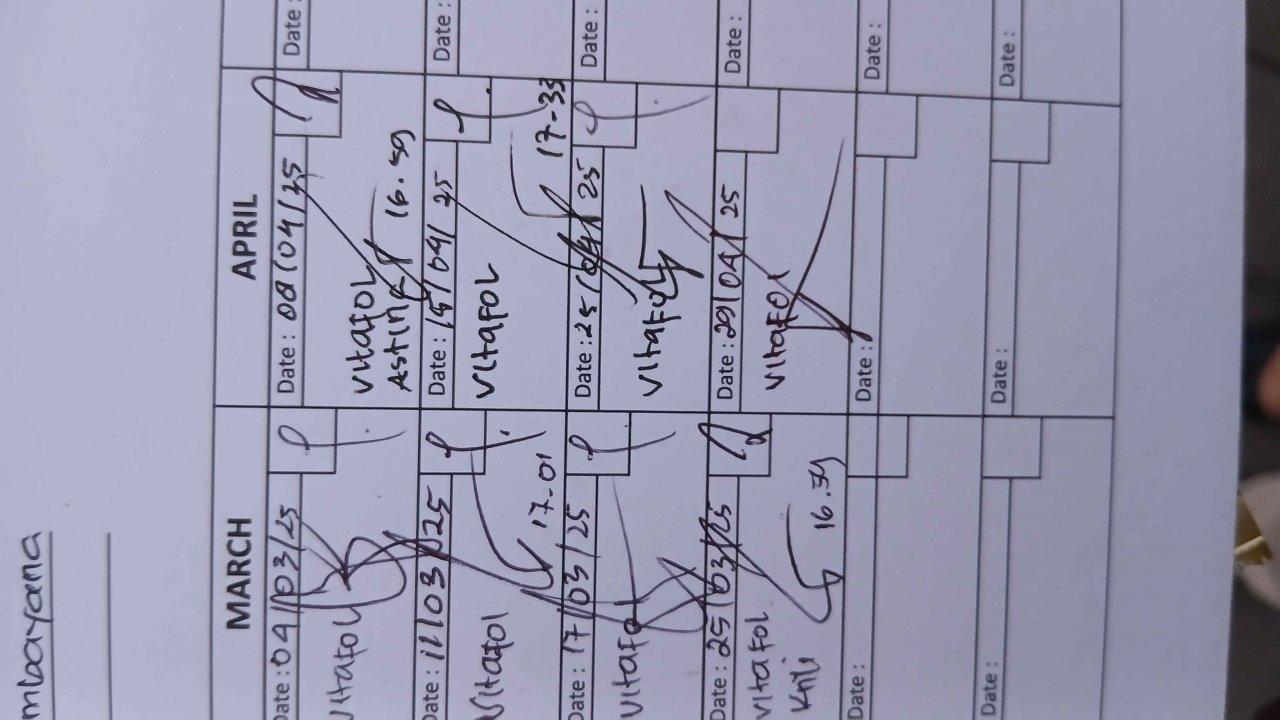 mbayana
MARCH
Date : 04/03/25
Vitafol
Date : 11/03/25
Vitafol
17-01
Date : 17/03/25
Vitafol
Date : 25/03/25
Vitafol
16.39
Date :
Date :
APRIL
Date : 08/04/25
Vitafol
16.59
Date : 15/04/25
Vitafol
17-33
Date : 25/04/25
Vitafol
Date : 29/04/25
Vitafol
Date :
Date :
Date :
Date :
Date :
Date :
Date :
Date :